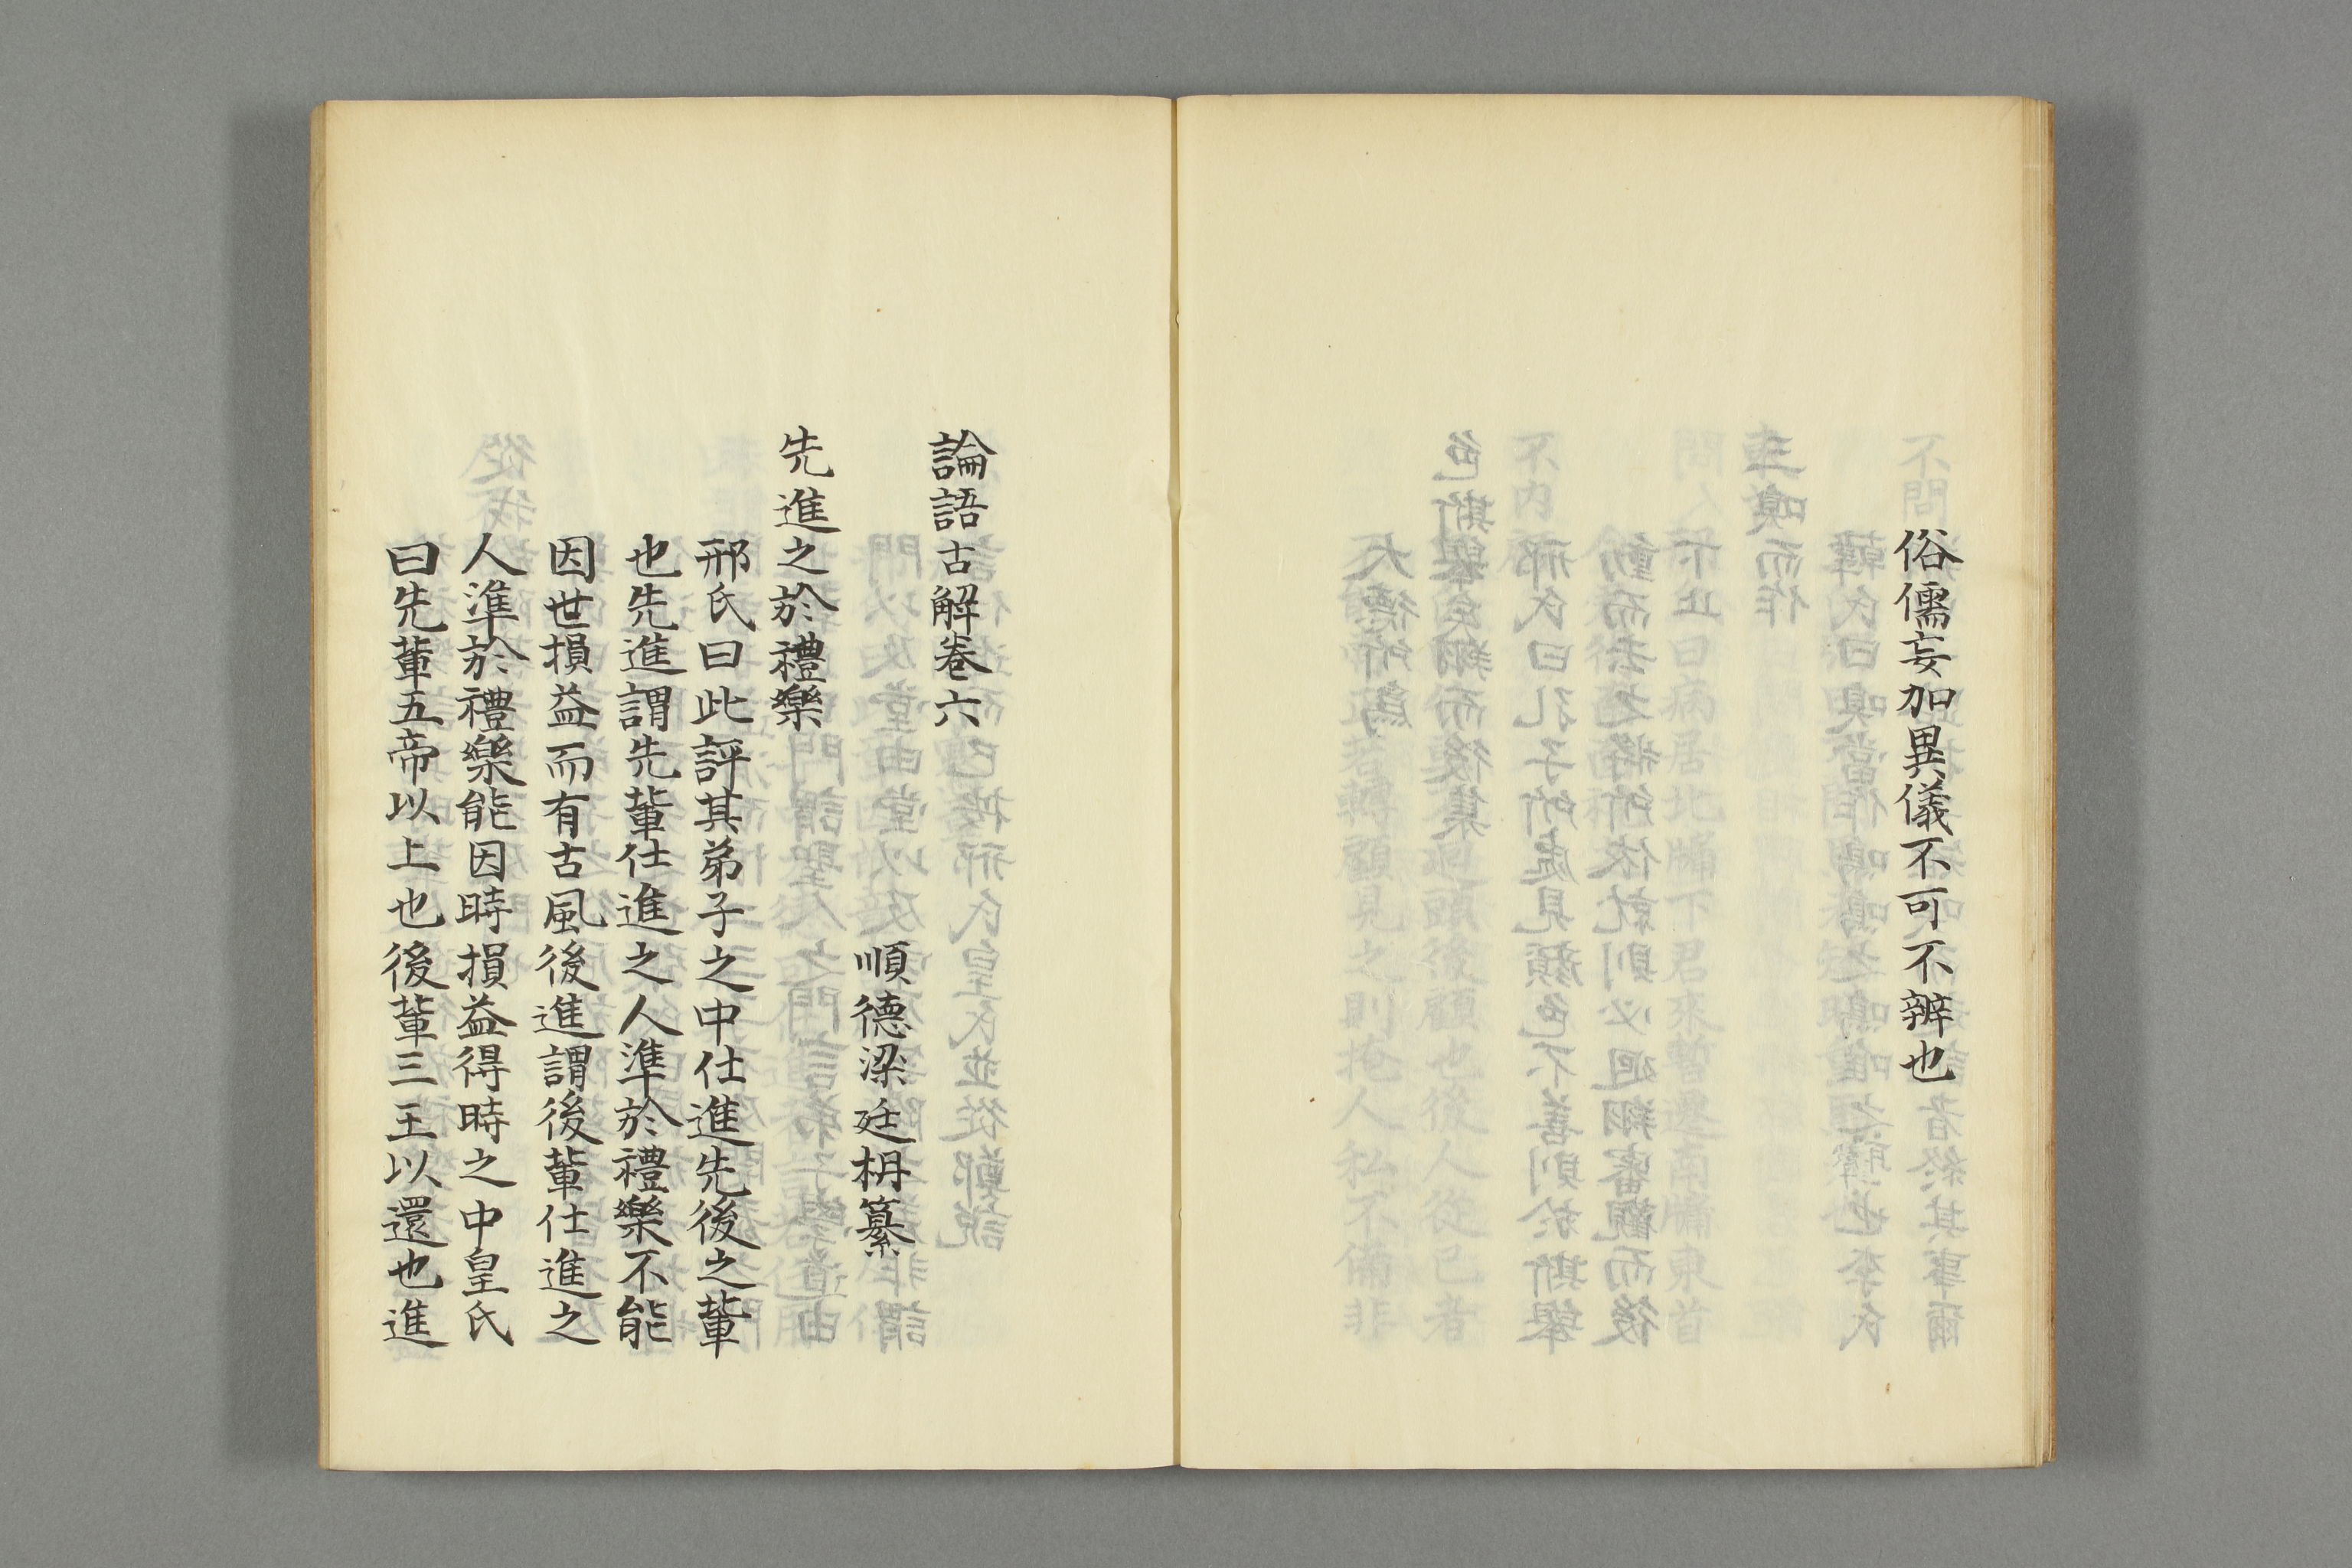 俗儒妄加異儀不可不辨也
論語古解卷六
順德梁廷枏纂
先進之於禮樂
邢氏曰此評其弟子之中仕進先後之輩
也先進謂先輩仕進之人準於禮樂不能
因世損益而有古風後進謂後輩仕進之
人準於禮樂能因時損益得時之中皇氏
曰先輩五帝以上也後輩三王以還也進